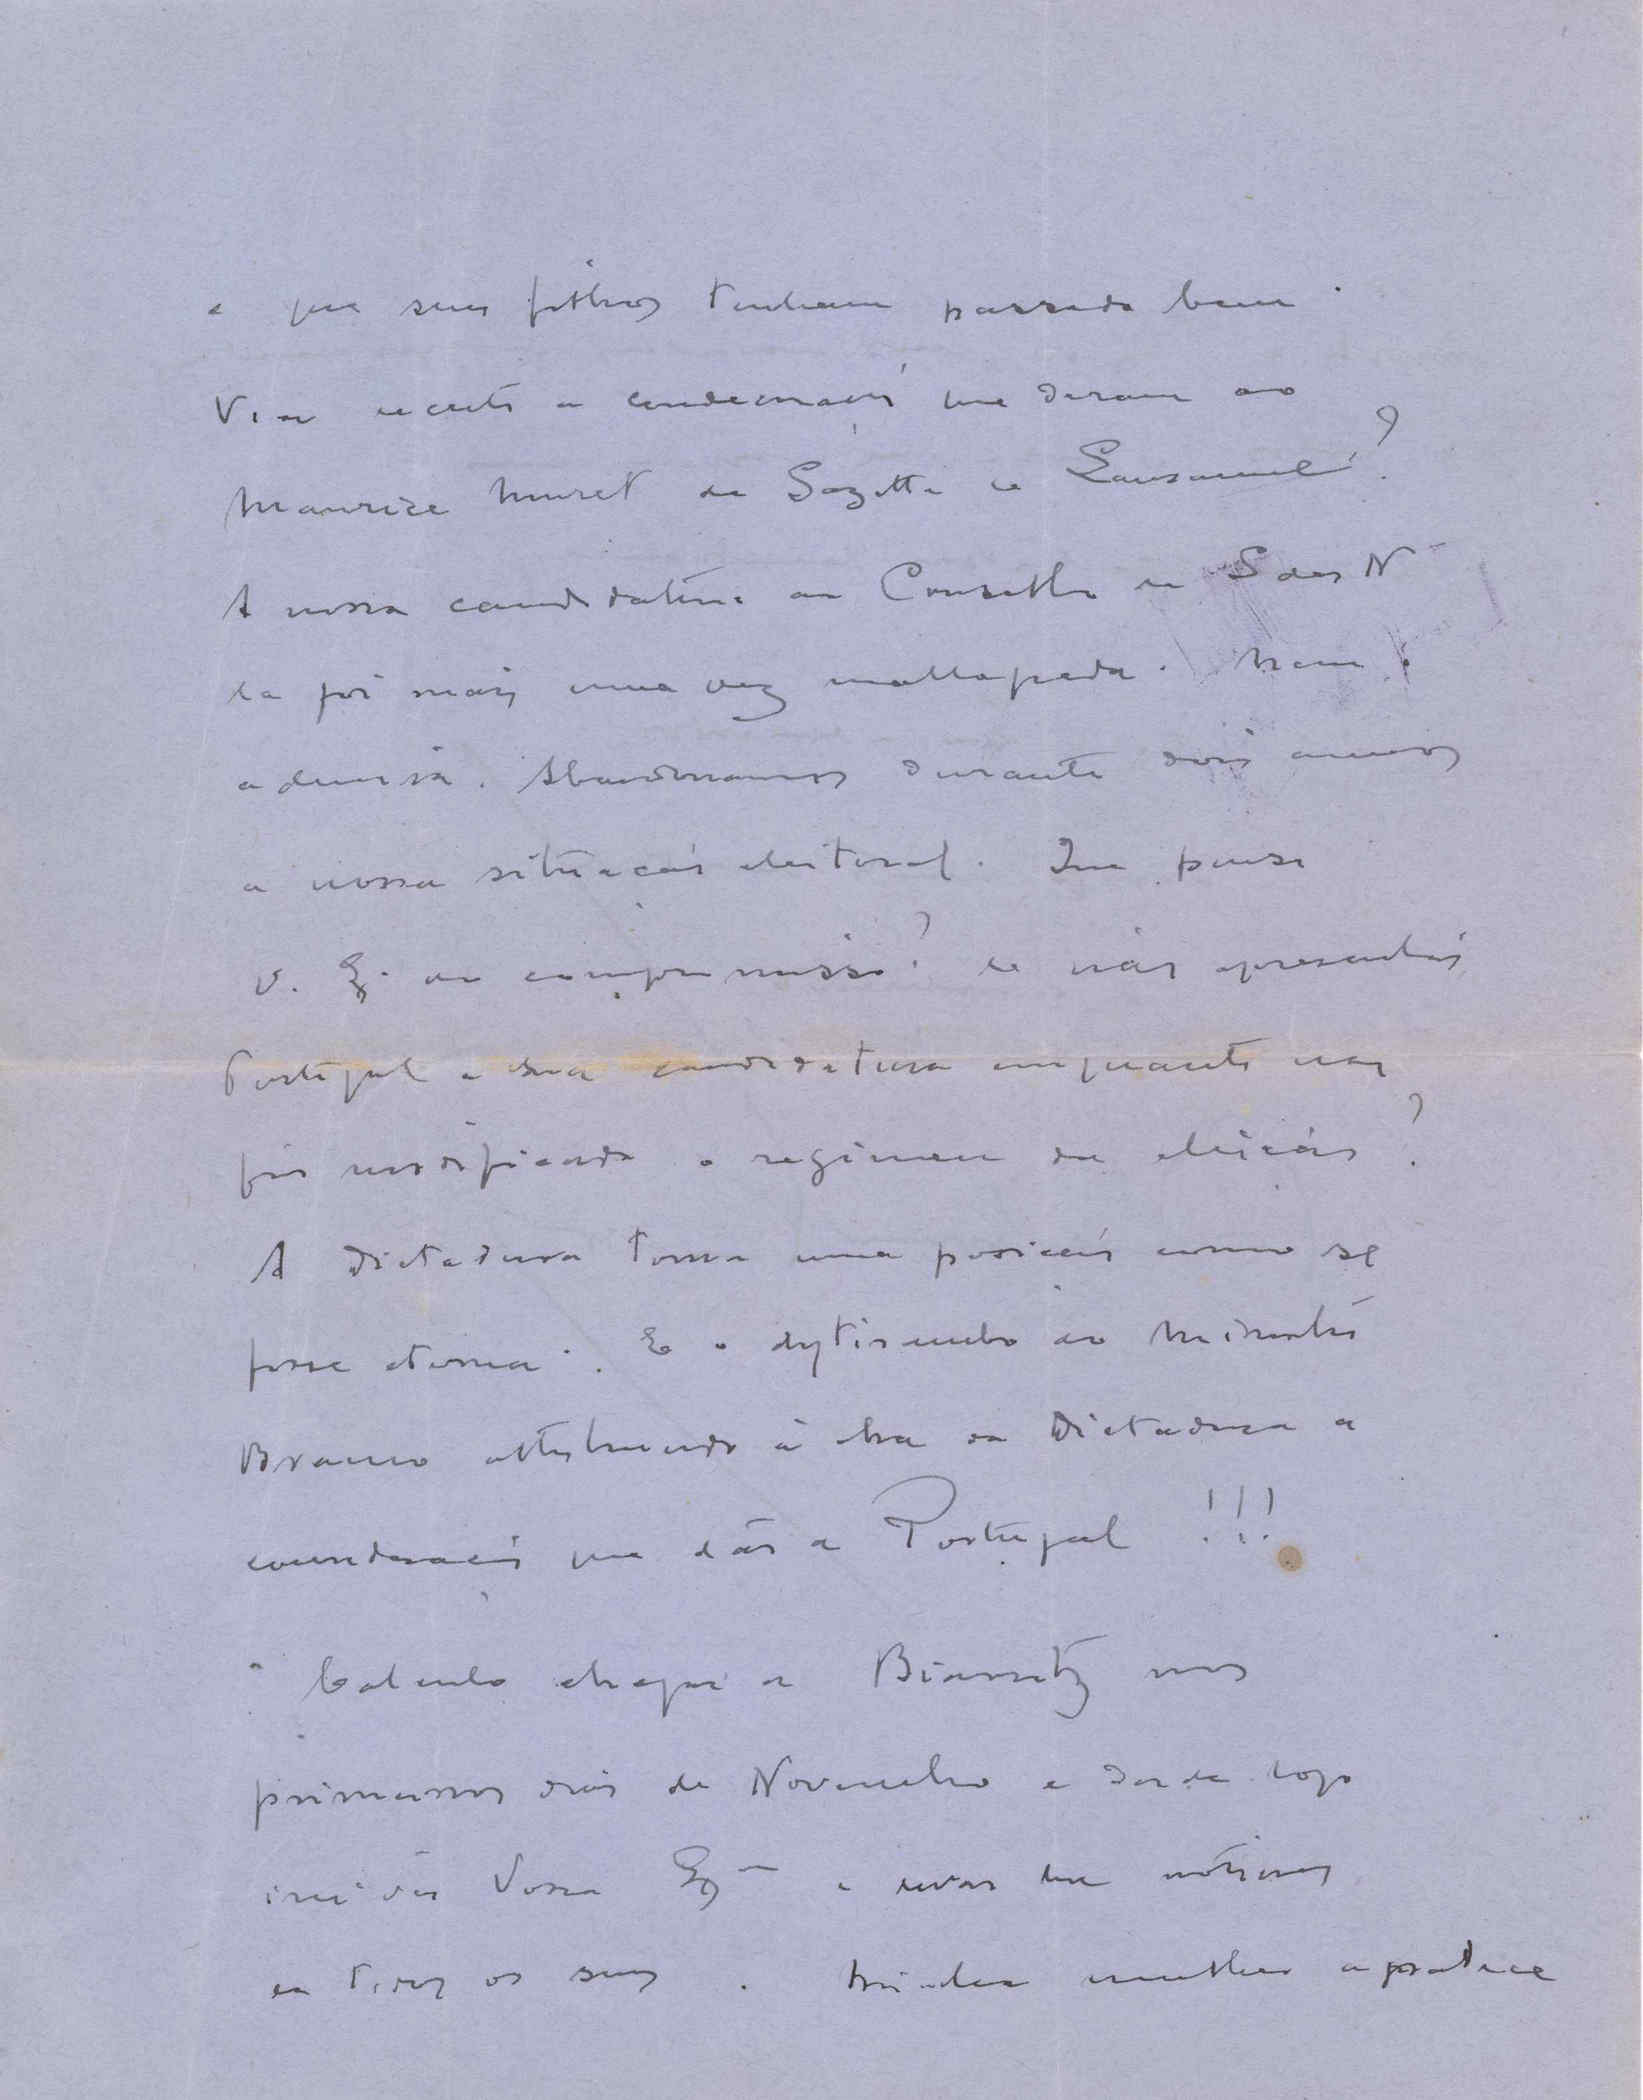 e que seus filhos tenham passado bem.
V. a condecoração que deram ao
Maurice Muret da Gazette de Lausanne?
A nossa candidatura ao Conselho da S das N
la foi mais uma vez mallograda. Nem
admira. Abandonamos durante dois annos
a nossa situação eleitoral. Que pensa
V. Ex. ao compromisso? de não apresentar
Portugal a sua candidatura emquanto não
for modificado o regimen da eleição?
A Dictadura toma uma posição como se
fosse eterna. E o ao Ministro
Branco attribuindo á obra da Dictadura a
consideração que dão a Portugal!!!
Calculo chegar a Biarritz nos
primeiros dias de Novembro e desde logo
irei ver Vossa Ex.ª e levar lhe noticias
de todos os seus. Minha mulher agradece